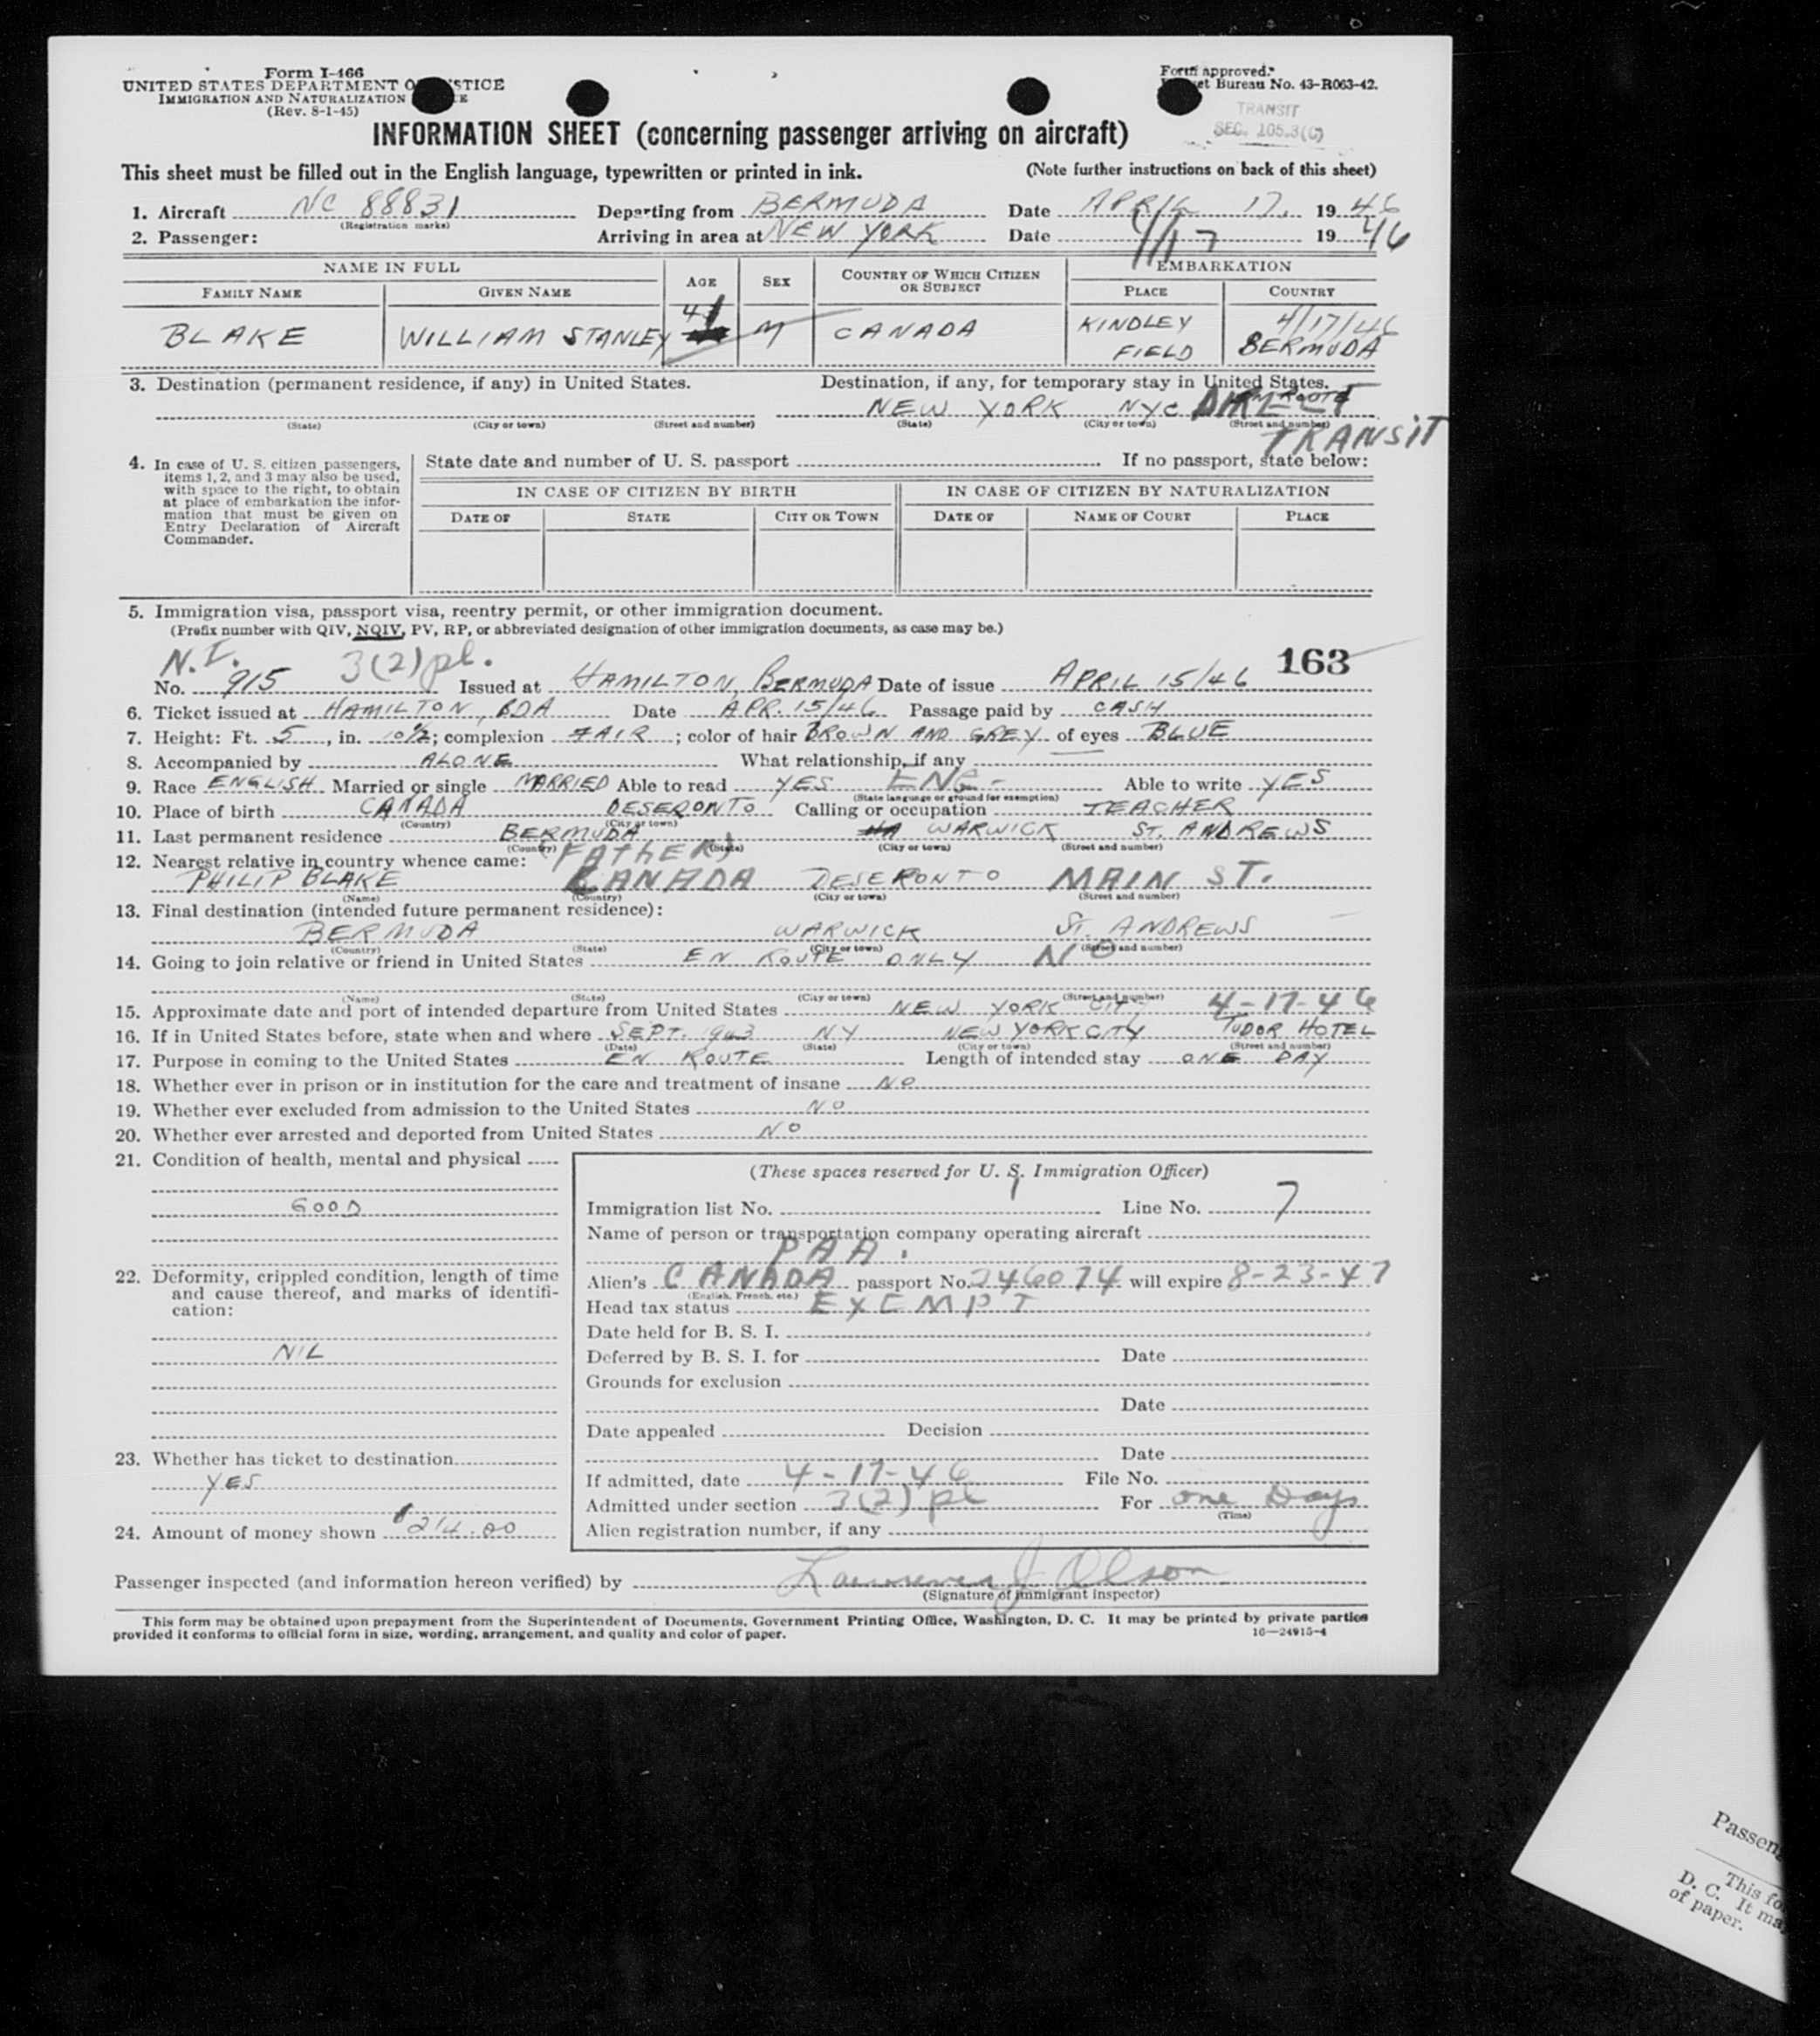 Form I-466
UNITED STATES DEPARTMENT OF JUSTICE
IMMIGRATION AND NATURALIZATION
(Rev. 8-1-45)
Form approved.
Bureau No. 43-R063-42.
TRANSIT
SEC. 105.3(C)
INFORMATION SHEET (concerning passenger arriving on aircraft)
This sheet must be filled out in the English language, typewritten or printed in ink. (Note further instructions on back of this sheet)
1. Aircraft NC 88831 Departing from BERMUDA Date APRIL 17, 1946
(Registration marks)
2. Passenger: Arriving in area at NEW YORK Date 4/17 1946
NAME IN FULL AGE SEX COUNTRY OF WHICH CITIZEN OR SUBJECT EMBARKATION
FAMILY NAME GIVEN NAME PLACE COUNTRY
41 4/17/46
BLAKE WILLIAM STANLEY M CANADA KINDLEY FIELD BERMUDA
3. Destination (permanent residence, if any) in United States. Destination, if any, for temporary stay in United States.
NEW YORK NYC DIRECT
(State) (City or town) (Street and number) (State) (City or town) (Street and number)
TRANSIT
4. In case of U. S. citizen passengers, items 1, 2, and 3 may also be used, with space to the right, to obtain at place of embarkation the information that must be given on Entry Declaration of Aircraft Commander.
State date and number of U. S. passport If no passport, state below:
IN CASE OF CITIZEN BY BIRTH IN CASE OF CITIZEN BY NATURALIZATION
DATE OF STATE CITY OR TOWN DATE OF NAME OF COURT PLACE
5. Immigration visa, passport visa, reentry permit, or other immigration document.
(Prefix number with QIV, NQIV, PV, RP, or abbreviated designation of other immigration documents, as case may be.)
N.I. 3(2)pl. 163
No. 915 Issued at HAMILTON, BERMUDA Date of issue APRIL 15/46
6. Ticket issued at HAMILTON, BDA Date APR. 15/46 Passage paid by CASH
7. Height: Ft. 5, in. 10½; complexion FAIR; color of hair BROWN AND GREY of eyes BLUE
8. Accompanied by ALONE What relationship, if any
9. Race ENGLISH Married or single MARRIED Able to read YES ENG- Able to write YES
(State language or ground for exemption)
10. Place of birth CANADA DESERONTO Calling or occupation TEACHER
(Country) (City or town)
11. Last permanent residence BERMUDA WARWICK ST. ANDREWS
(Country) (State) (City or town) (Street and number)
12. Nearest relative in country whence came: (FATHER)
PHILIP BLAKE CANADA DESERONTO MAIN ST.
(Name) (Country) (City or town) (Street and number)
13. Final destination (intended future permanent residence):
BERMUDA WARWICK ST. ANDREWS
(Country) (State) (City or town) (Street and number)
14. Going to join relative or friend in United States EN ROUTE ONLY NO
(Name) (State) (City or town) (Street and number)
15. Approximate date and port of intended departure from United States NEW YORK CITY 4-17-46
16. If in United States before, state when and where SEPT. 1943 NY NEW YORK CITY TUDOR HOTEL
(Date) (State) (City or town) (Street and number)
17. Purpose in coming to the United States EN ROUTE Length of intended stay ONE DAY
18. Whether ever in prison or in institution for the care and treatment of insane NO
19. Whether ever excluded from admission to the United States NO
20. Whether ever arrested and deported from United States NO
21. Condition of health, mental and physical
GOOD
22. Deformity, crippled condition, length of time and cause thereof, and marks of identification:
NIL
23. Whether has ticket to destination
YES
24. Amount of money shown $214.00
(These spaces reserved for U. S. Immigration Officer)
Immigration list No. 1 Line No. 7
Name of person or transportation company operating aircraft
PAA.
Alien's CANADA passport No. 246074 will expire 8-23-47
(English, French, etc.)
Head tax status EXEMPT
Date held for B. S. I.
Deferred by B. S. I. for Date
Grounds for exclusion
Date
Date appealed Decision
Date
If admitted, date 4-17-46 File No.
Admitted under section 3(2)pl For one Days
(Time)
Alien registration number, if any
Passenger inspected (and information hereon verified) by Lawrence J Olson
(Signature of immigrant inspector)
This form may be obtained upon prepayment from the Superintendent of Documents, Government Printing Office, Washington, D. C. It may be printed by private parties
provided it conforms to official form in size, wording, arrangement, and quality and color of paper. 16—24915-4
Passen
This fo
D. C. It ma
of paper.